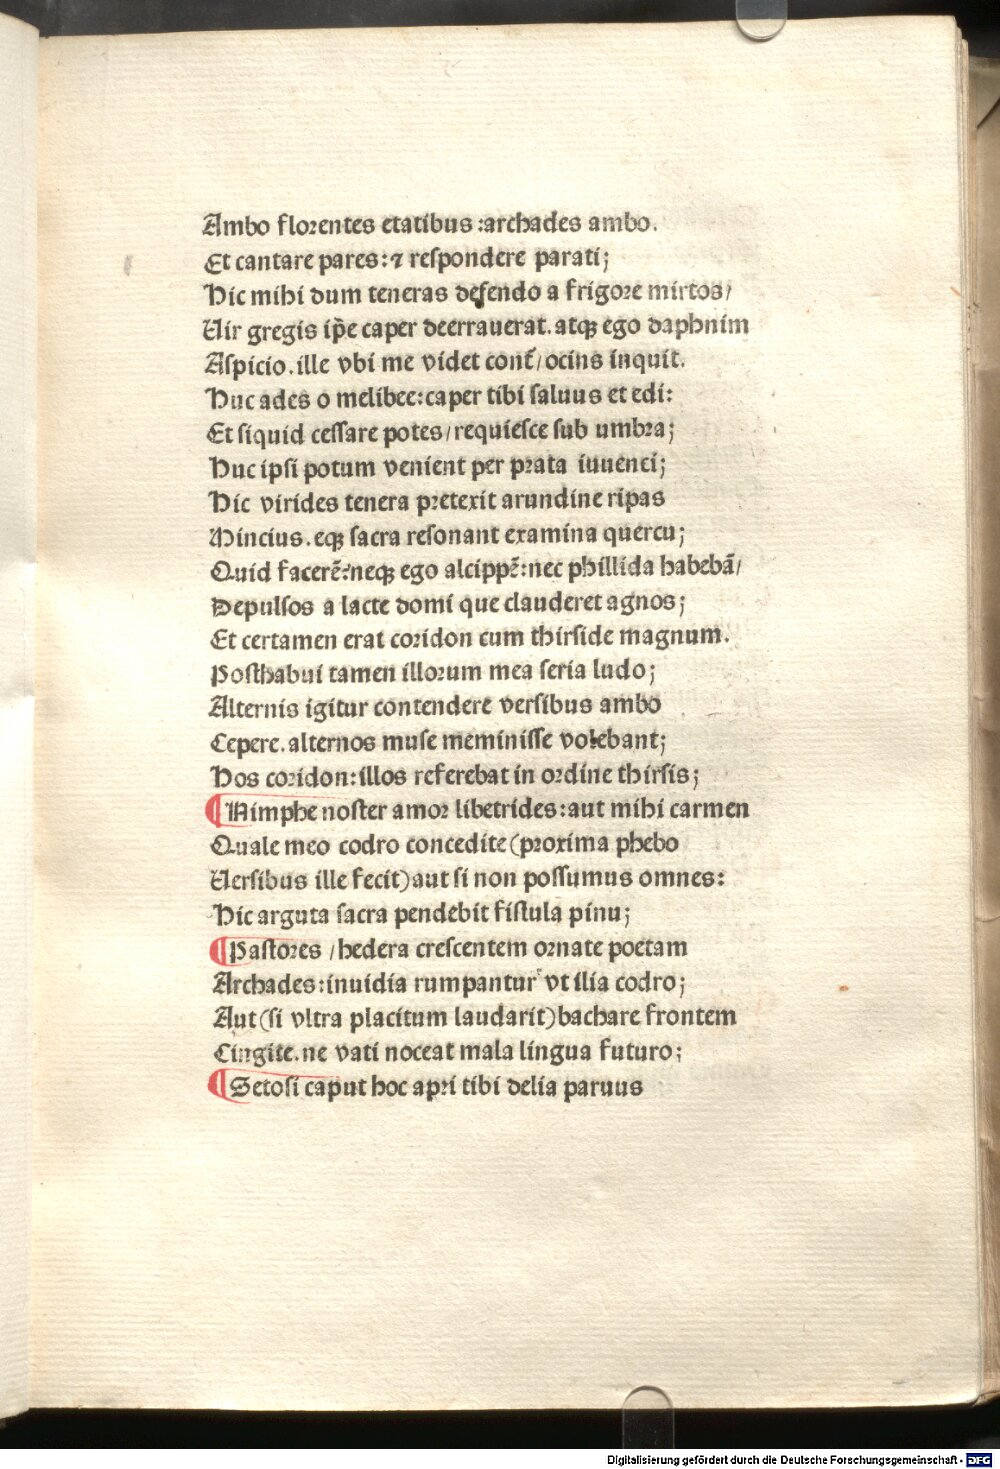 Ambo florentes etatibus :archades ambo.
Et cantare pares: ⁊ respondere parati;
Hic mihi dum teneras defendo a frigore mirtos/
Uir gregis ip̄e caper deerrauerat. atqꝫ ego daphnim
Aspicio. ille vbi me videt cont̄/ ocius inquit.
Huc ades o melibee: caper tibi saluus et edi:
Et siquid cessare potes/ requiesce sub umbra;
Huc ipsi potum venient per prata iuuenci;
Hic virides tenera pretexit arundine ripas
Mincius. eqꝫ sacra resonant examina quercu;
Quid facerē: neqꝫ ego alcippē: nec phillida habebā/
Depulsos a lacte domi que clauderet agnos;
Et certamen erat coridon cum thirside magnum.
Posthabui tamen illorum mea seria ludo;
Alternis igitur contendere versibus ambo
Cepere. alternos muse meminisse volebant;
Hos coridon: illos referebat in ordine thirsis;
¶ Nimphe noster amor libetrides: aut mihi carmen
Quale meo codro concedite (proxima phebo
Uersibus ille fecit) aut si non possumus omnes:
Hic arguta sacra pendebit fistula pinu;
¶ Pastores / hedera crescentem ornate poetam
Archades: inuidia rumpantur vt ilia codro;
Aut (si vltra placitum laudarit) bachare frontem
Cingite. ne vati noceat mala lingua futuro;
¶ Setosi caput hoc apri tibi delia paruus
Digitalisierung gefördert durch die Deutsche Forschungsgemeinschaft - DFG